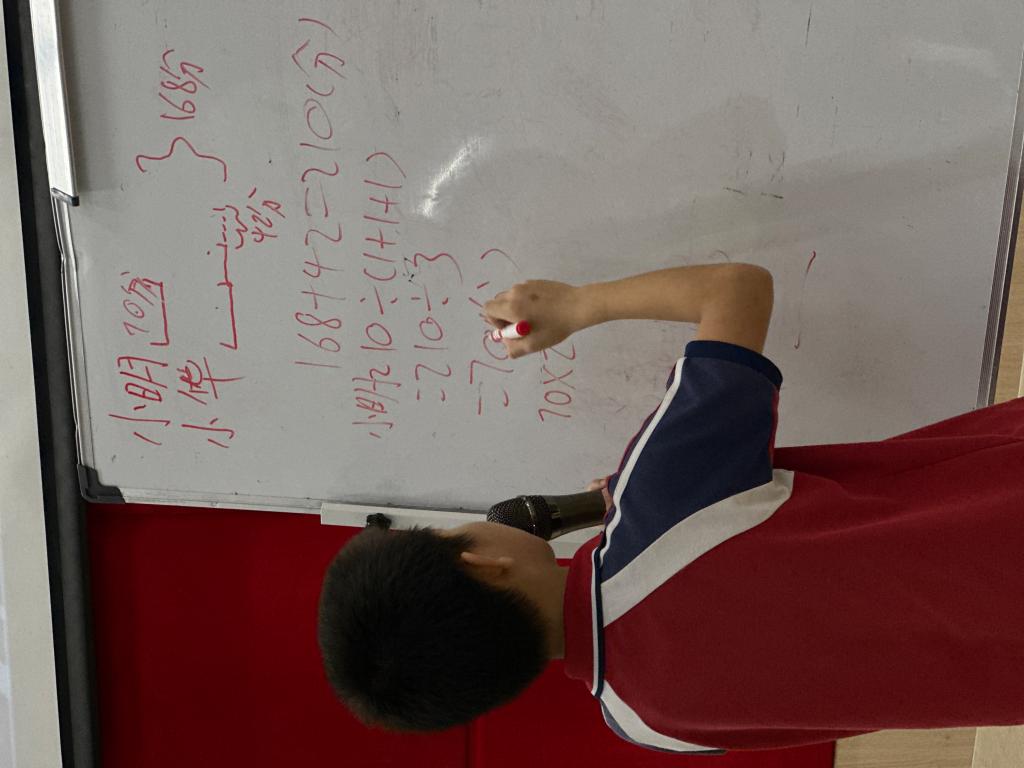 小明 70分
小华
42分
168分
168+42=210(分)
小明210÷(1+1+1)
=210÷3
=70
70×2